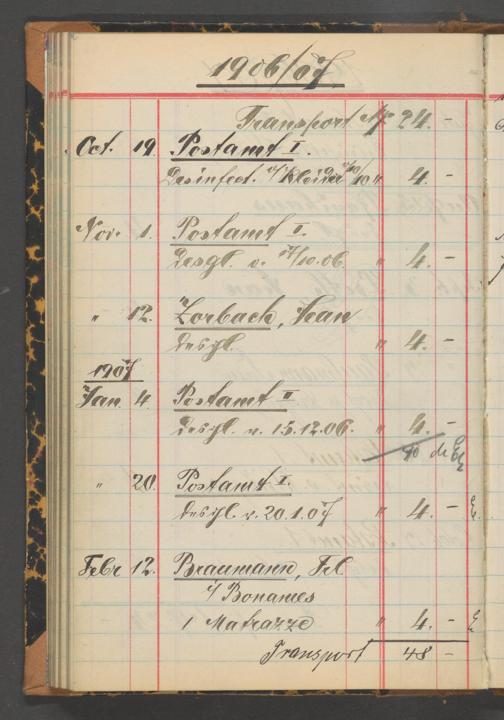 1906/07
Transport M 24. –
Oct. 19. Postamt I.
Desinfect. v/ Kleider " 4. –
Nov. 1. Postamt I.
desgl. v. /10.06. " 4. –
" 12. Zorbach, Jean
desgl. " 4. –
1907
Jan 4. Postamt II
desgl. v. 15.12.06. " 4. –
40
" 20. Postamt I.
desgl. v. 20.1.07 " 4. –
Febr 12. Braumann, Frl
v/ Bonames
1 Matrazze " 4. –
Transport 48 –